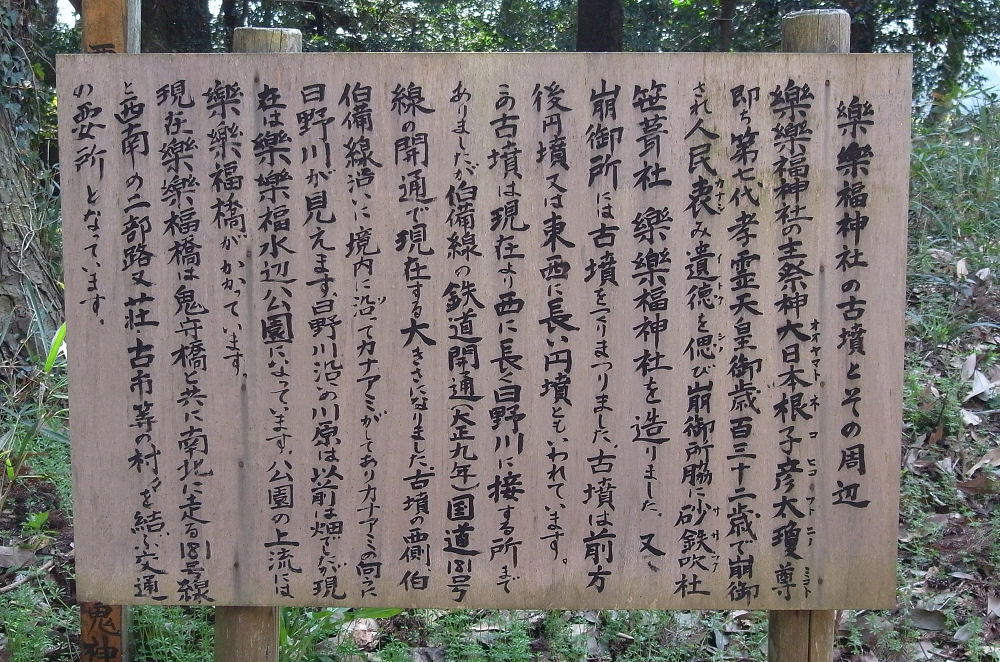 樂樂福神社の古墳とその周辺
樂樂福神社の主祭神大日本根子彦太瓊尊
オオヤマトネコヒコフトニノミコト
即ち第七代孝霊天皇御歳百三十二歳で崩御
され人民哀み遺徳を偲び崩御所脇に砂鉄吹社
笹葺社 樂樂福神社を造りました、又、
崩御所には古墳をつくりまつりました、古墳は前方
後円墳又は東西に長い円墳ともいわれています。
この古墳は現在より西に長く日野川に接する所まで
ありましたが伯備線の鉄道開通(大正九年)国道181号
線の開通で現在する大きさになりました、古墳の西側伯
伯備線沿いに境内に沿ってカナアミがしてありカナアミの向うに
日野川が見えます、日野川沿の川原は以前は畑でしたが現
在は樂樂福水辺公園になっています、公園の上流には
樂樂福橋がかかています。
現在樂樂福橋は鬼守橋と共に南北に走る181号線
と西南の二部路又荘、古市等の村々を結ぶ交通
の要所となっています。
鬼神